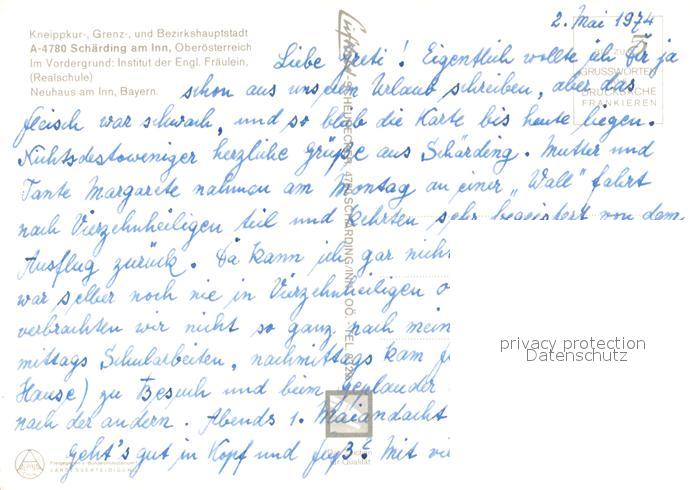 Kneippkur-, Grenz-, und Bezirkshauptstadt
A-4780 Schärding am Inn, Oberösterreich
Im Vordergrund: Institut der Engl. Fräulein,
(Realschule)
Neuhaus am Inn, Bayern.
2. Mai 1974
Liebe Greti! Eigentlich wollte ich Dir ja
schon aus unserem Urlaub schreiben, aber das
Fleisch war schwach, und so blieb die Karte bis heute liegen.
Nichtsdestoweniger herzliche Grüße aus Schärding. Mutter und
Tante Margarete nahmen am Montag an einer „Wall"fahrt
nach Vierzehnheiligen teil und kehrten sehr begeistert von dem
Ausflug zurück. Da kann ich gar nicht
war selber noch nie in Vierzehnheiligen
verbrachten wir nicht so ganz nach mein
mittags Schularbeiten, nachmittags kam
Hause) zu Besuch und beim geplauder
nach der andern. Abends 1. Maiandacht
Geht's gut in Kopf und Fuß? Mit
GRUSSWORTEN
DRUCKSACHE
FRANKIEREN
privacy protection
Datenschutz
LANDESVERTEIDIGUNG